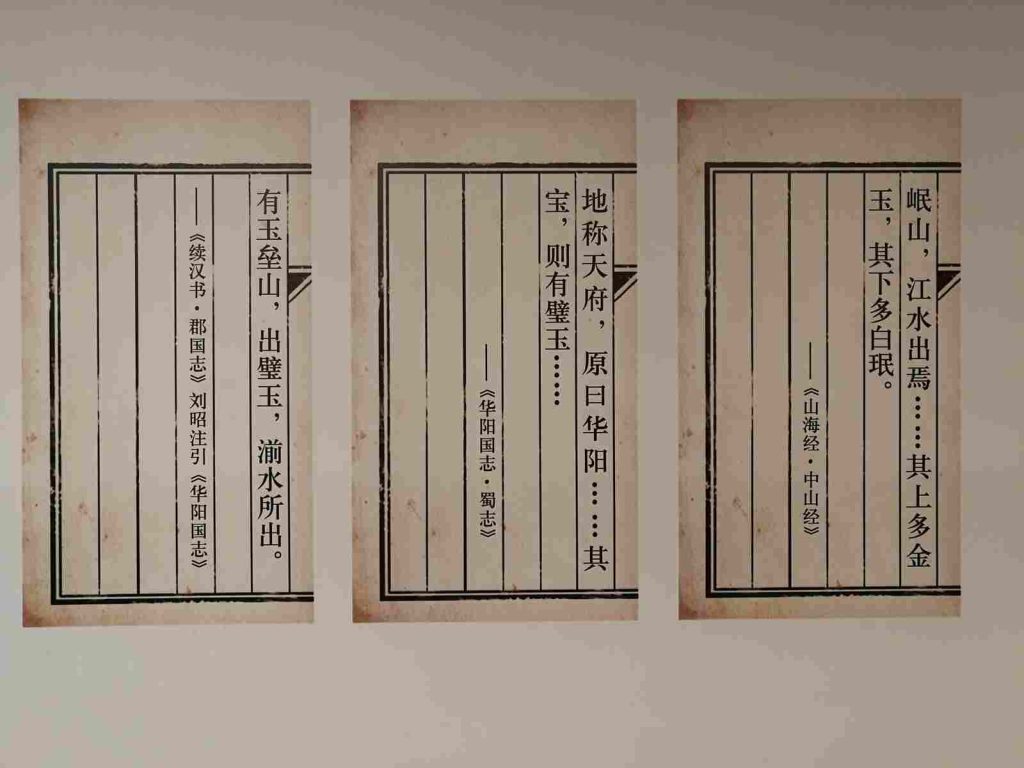 岷山，江水出焉……其上多金
玉，其下多白珉。
——《山海经·中山经》
地称天府，原曰华阳……其
宝，则有璧玉……
——《华阳国志·蜀志》
有玉垒山，出璧玉，湔水所出。
——《续汉书·郡国志》刘昭注引《华阳国志》